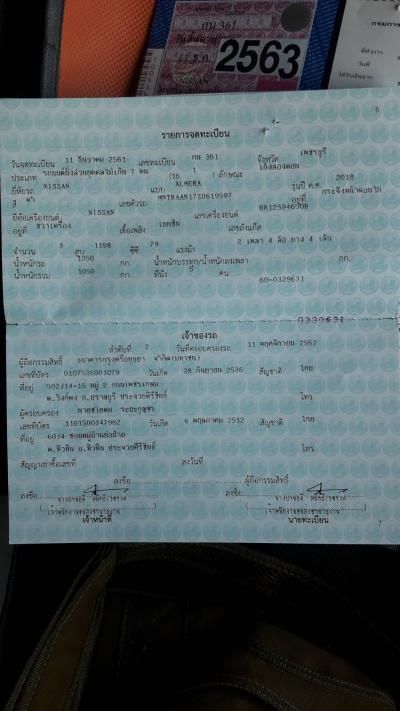 กน 361
2563
NISSAN
ที่ทำการ
วันที่
ได้รับเงินจาก
6
รายการจดทะเบียน
วันจดทะเบียน 11 ธันวาคม 2561 เลขทะเบียน กน 361 จังหวัด เพชรบุรี
ประเภท รถยนต์นั่งส่วนบุคคลไม่เกิน 7 คน (รย. 1 ) ลักษณะ เก๋งสองตอน
ยี่ห้อรถ NISSAN แบบ ALMERA รุ่นปี ค.ศ. 2018
สี เลขตัวรถ MNTBAAN17Z0619597 อยู่ที่
ยี่ห้อเครื่องยนต์ NISSAN เลขเครื่องยนต์ HR12594690B
อยู่ที่ ขวาเครื่อง เชื้อเพลิง เบนซิน เลขถังแก๊ส
จำนวน 3 สูบ 1198 ซีซี 79 แรงม้า 2 เพลา 4 ล้อ ยาง 4 เส้น
น้ำหนักรถ 1050 กก. น้ำหนักบรรทุก/น้ำหนักลงเพลา กก.
น้ำหนักรวม 1050 กก. ที่นั่ง 5 คน
60-0329631
0329631
เจ้าของรถ
ลำดับที่ 2 วันที่ครอบครองรถ 11 พฤศจิกายน 2562
ผู้ถือกรรมสิทธิ์ ธนาคารกรุงศรีอยุธยา จำกัด(มหาชน)
เลขที่บัตร 0107536001079 วันเกิด 28 กันยายน 2536 สัญชาติ ไทย
ที่อยู่ 502/14-15 หมู่ 2 ถนนเพชรเกษม
ต.วังก์พง อ.ปราณบุรี ประจวบคีรีขันธ์ โทร.
ผู้ครอบครอง
เลขที่บัตร 1101500347962 วันเกิด 6 พฤษภาคม 2532 สัญชาติ ไทย
ที่อยู่ 60/4
ต.หัวหิน อ.หัวหิน ประจวบคีรีขันธ์ โทร.
สัญญาเช่าซื้อเลขที่ ลงวันที่
ลงชื่อ ผู้ถือกรรมสิทธิ์
ลงชื่อ ลงชื่อ
เจ้าหน้าที่ นายทะเบียน
7